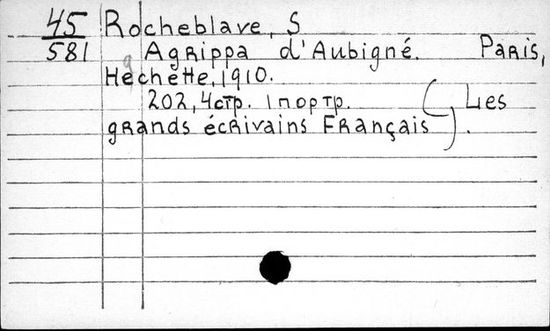 45 Rocheblave, S
581 Agrippa d'Aubigné. Paris,
Hachette, 1910.
202, 4 стр. 1 портр. (Les
grands écrivains Français).